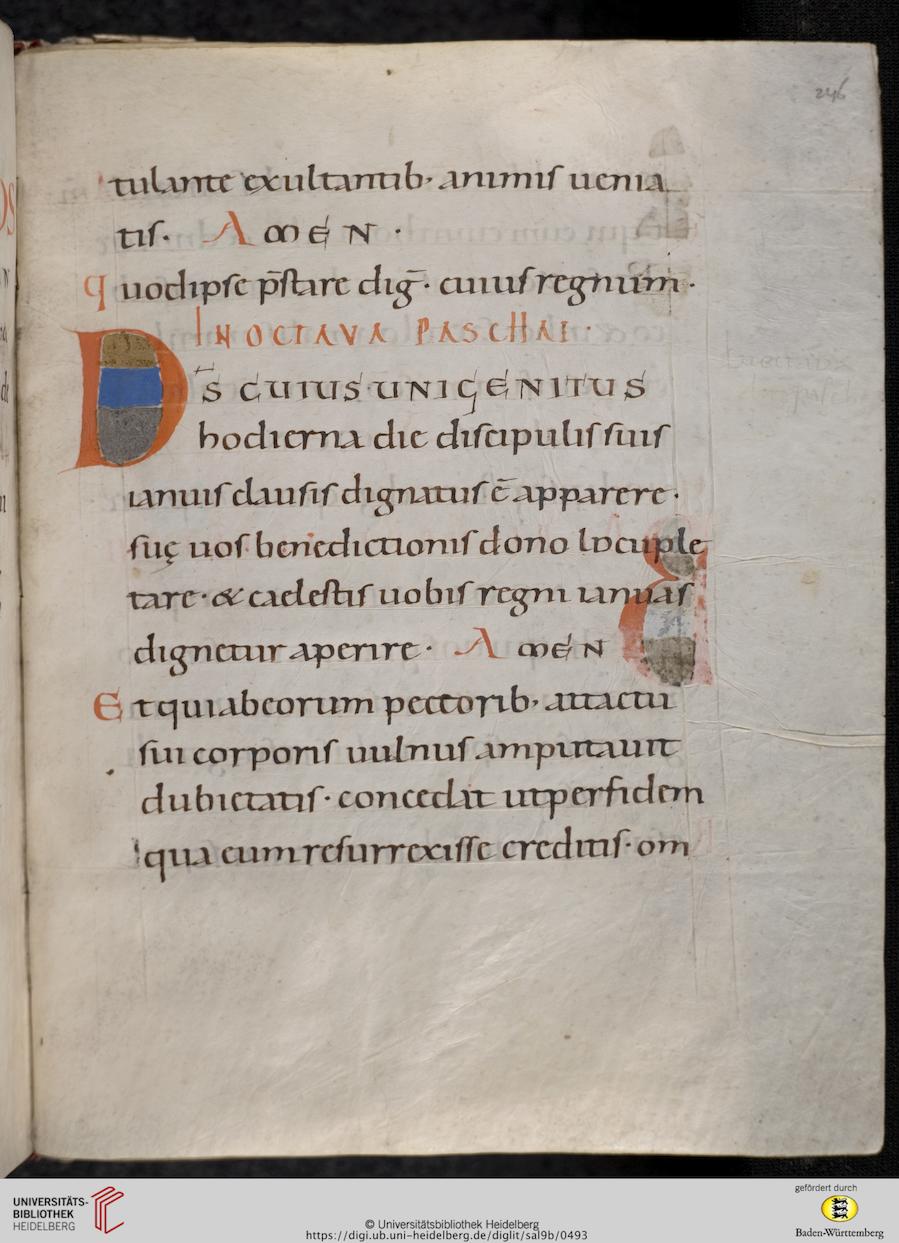 246
tulante exultantib· animis uenia
tis· AMEN ·
quodipse p̄stare diḡ· cuius regnum·
IN OCTAVA PASCHAE·
D̄S CUIUS UNIGENITUS
hodierna die discipulis suis
ianuis clausis dignatus ē apparere·
suę uos benedictionis dono locuple
tare· & caelestis uobis regni ianuas
dignetur aperire· AMEN
Et qui ab eorum pectorib· attactu
sui corporis uulnus amputauit
dubietatis· concedat ut per fidem
qua eum resurrexisse creditis· om
UNIVERSITÄTS-
BIBLIOTHEK
HEIDELBERG
© Universitätsbibliothek Heidelberg
https://digi.ub.uni-heidelberg.de/diglit/sal9b/0493
gefördert durch
Baden-Württemberg